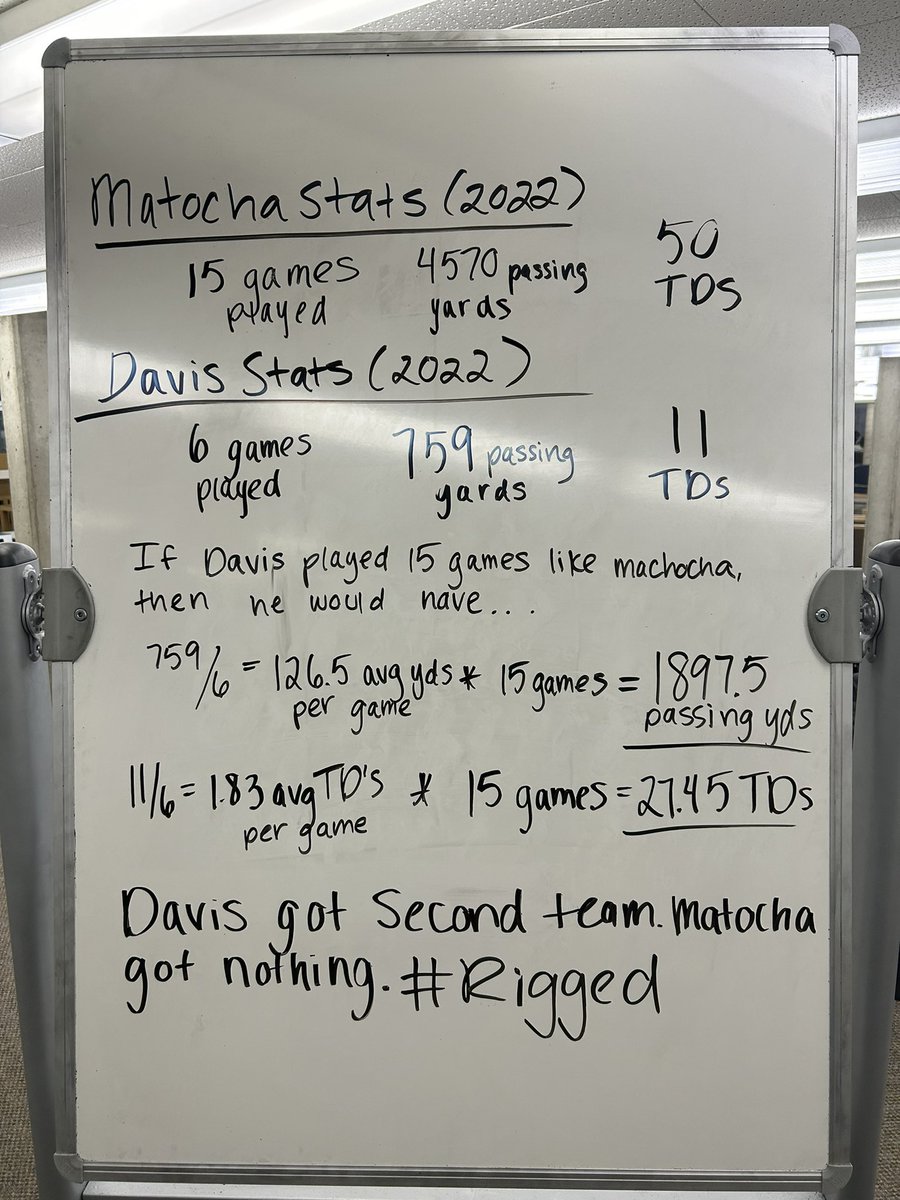 Matocha Stats (2022)
15 games played 4570 passing yards 50 TDs
Davis Stats (2022)
6 games played 759 passing yards 11 TDs
If Davis played 15 games like machocha,
then he would have...
759/6 = 126.5 avg yds per game * 15 games = 1897.5 passing yds
11/6 = 1.83 avg TD's per game * 15 games = 27.45 TDs
Davis got Second team. Matocha
got nothing. #Rigged